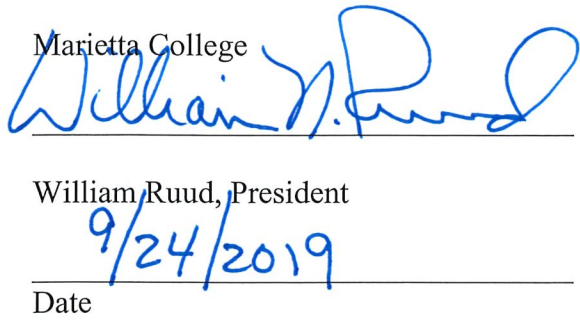 Marietta College
William N. Ruud
William Ruud, President
9/24/2019
Date